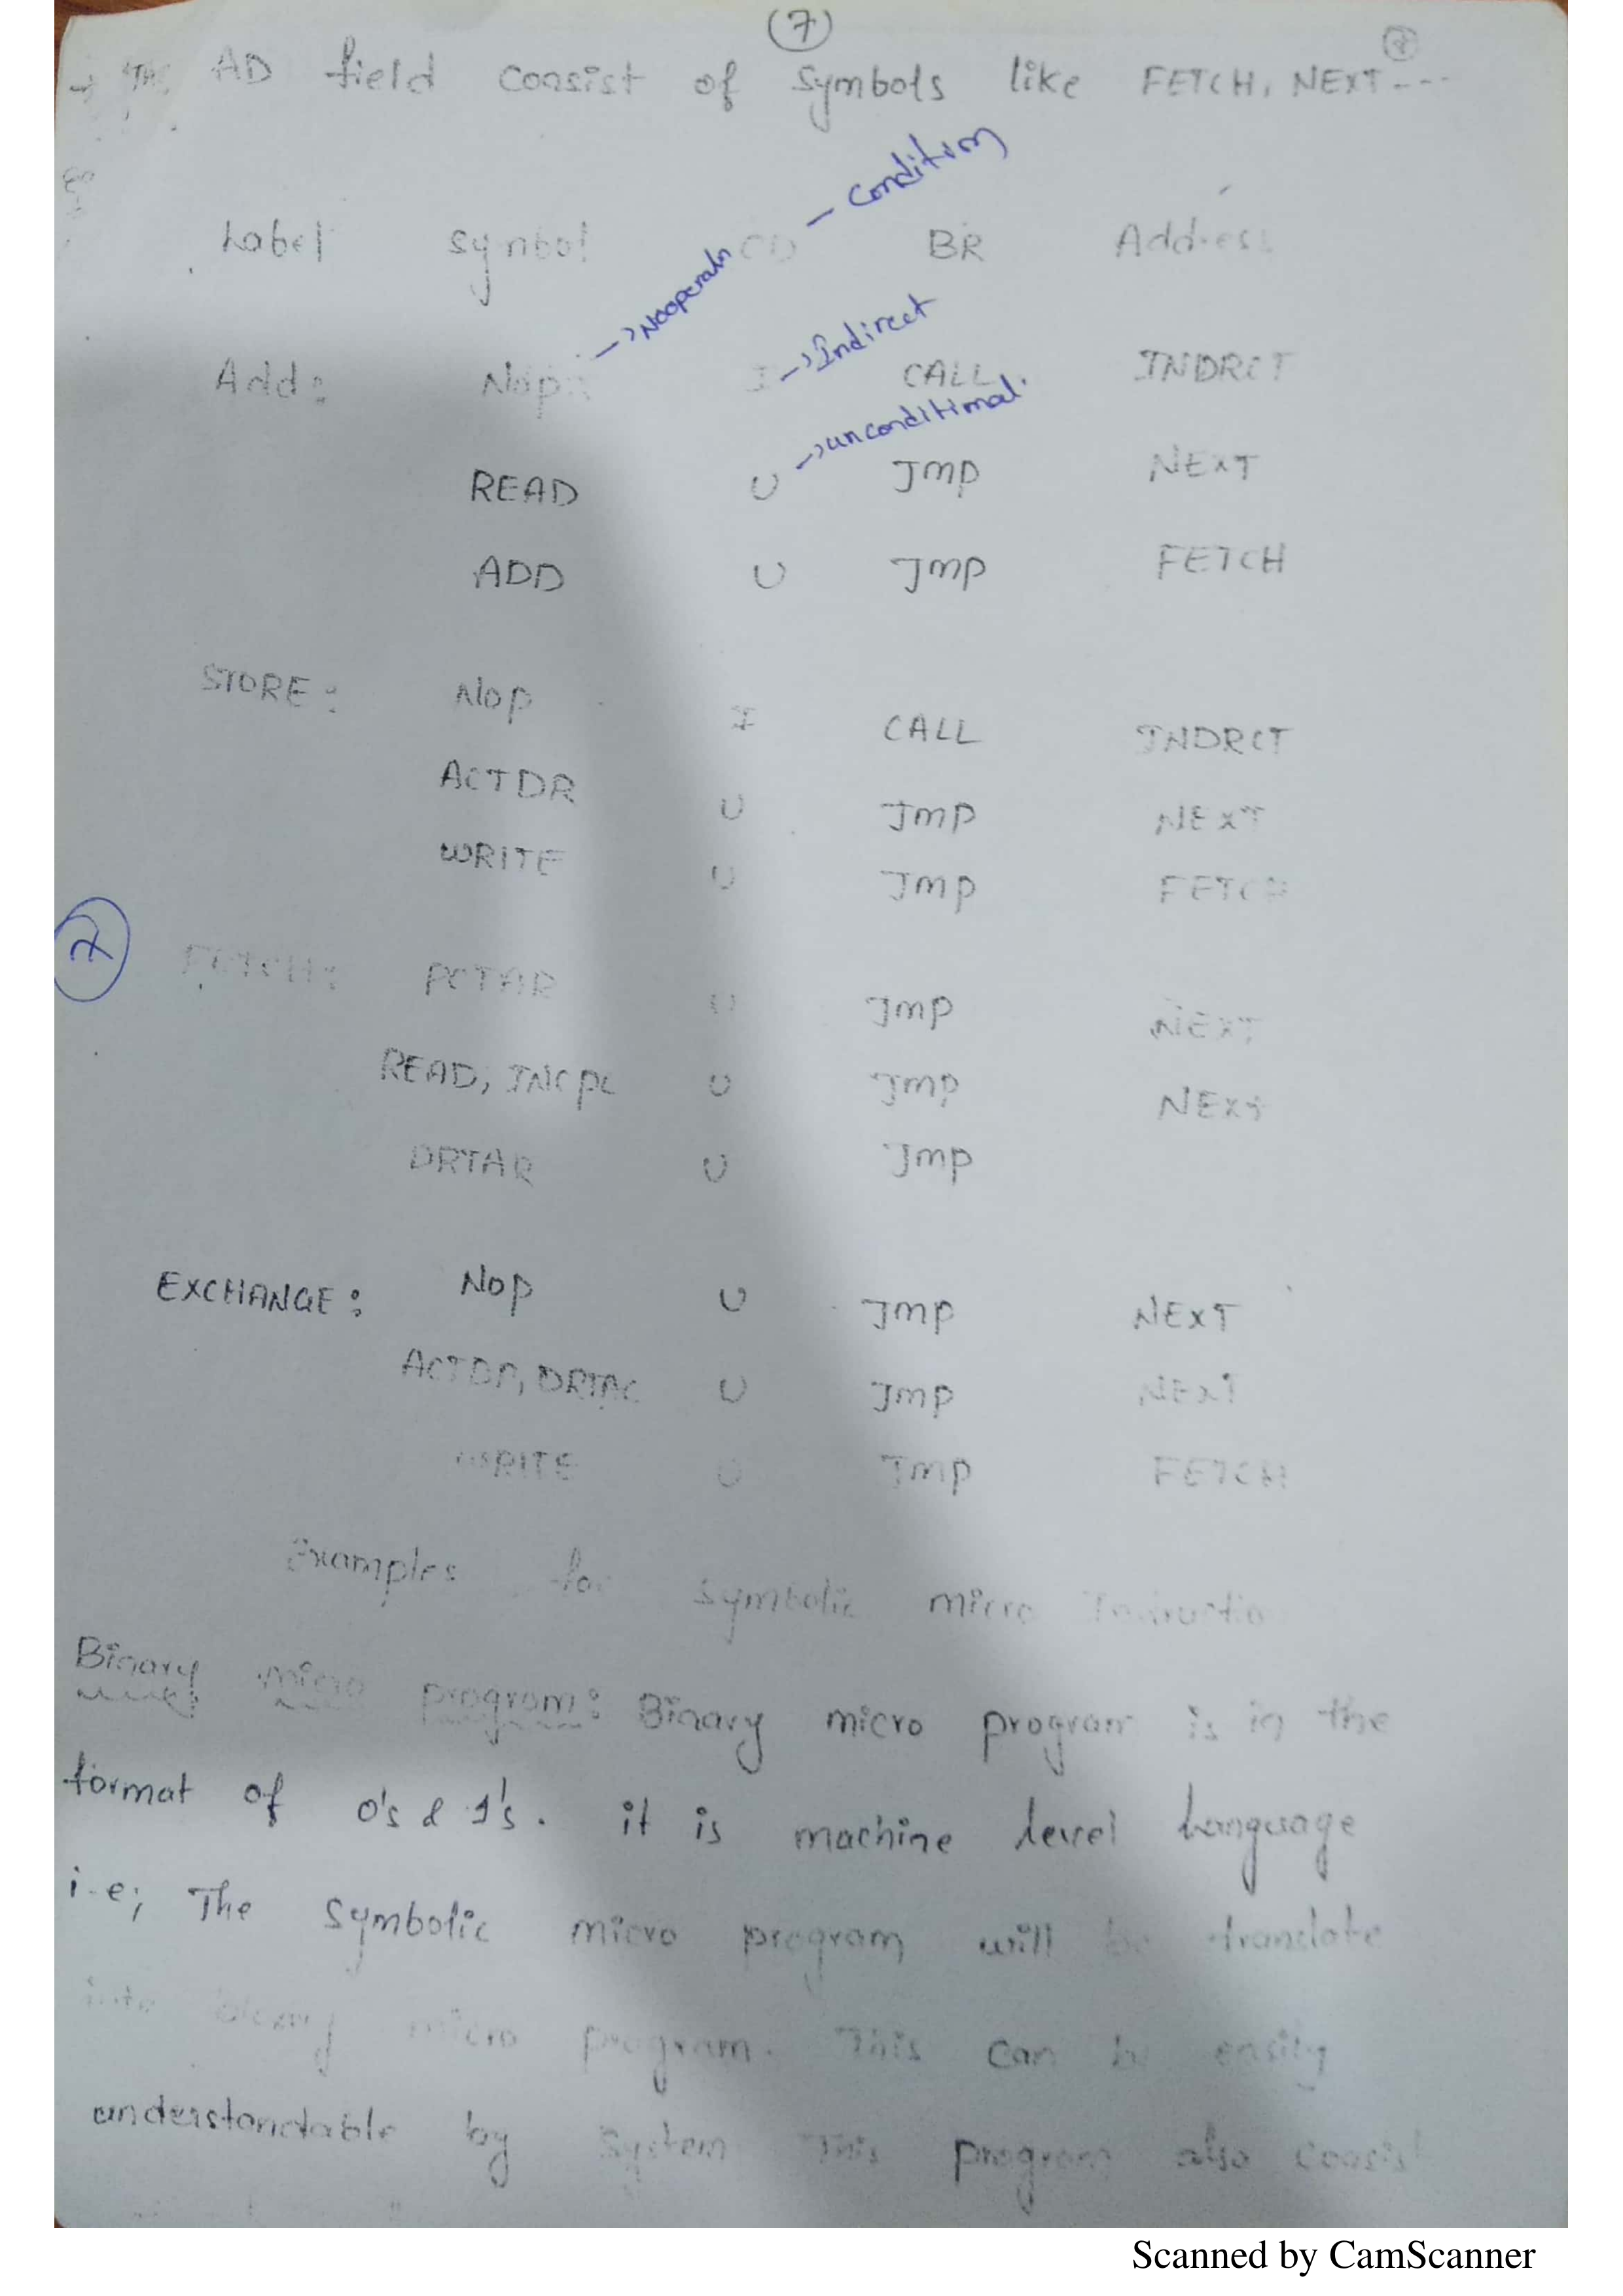 (7)
→ The AD field consist of symbols like FETCH, NEXT ---
Eg:
Label symbol CD – Condition BR Address
Add: Nop →Nooperatn I →Indirect CALL INDRCT
READ U →unconditional. Jmp NEXT
ADD U Jmp FETCH
STORE: Nop I CALL INDRCT
ACTDR U Jmp NEXT
WRITE U Jmp FETCH
(7)
FETCH: PCTAR U Jmp NEXT
READ, INCPC U Jmp NEXT
DRTAR U Jmp
EXCHANGE: Nop U Jmp NEXT
ACTDR, DRTAC U Jmp NEXT
WRITE U Jmp FETCH
Examples for symbolic micro Instructio
Binary micro program: Binary micro program is in the
format of 0's & 1's. it is machine level Language
i.e; The symbolic micro program will be translate
into binary micro program. This can be easily
understandable by system This program also consist
Scanned by CamScanner